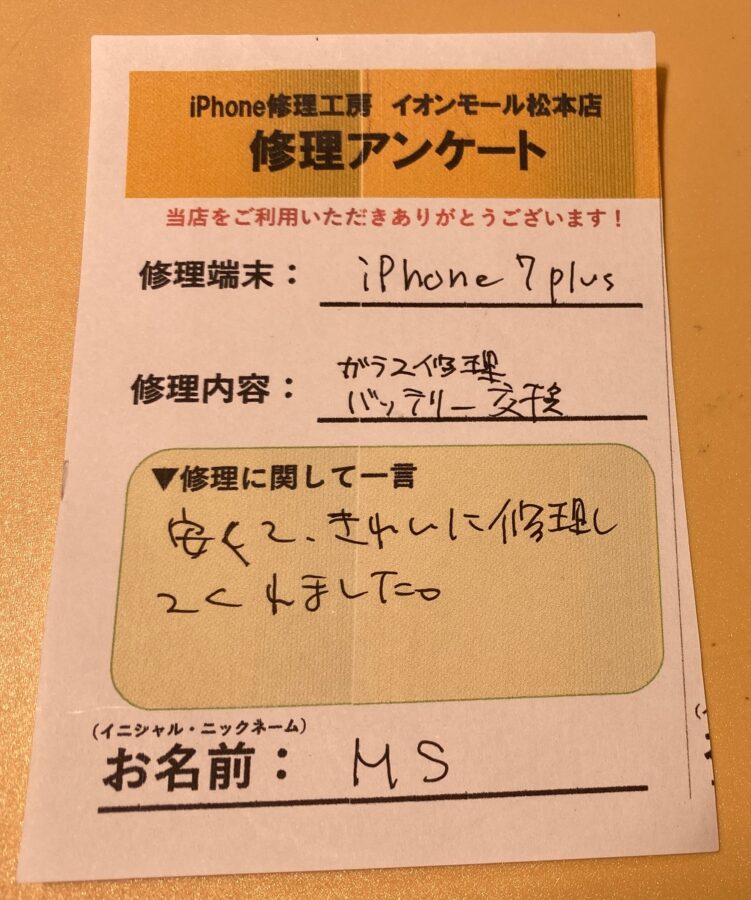 iPhone修理工房 イオンモール松本店
修理アンケート
当店をご利用いただきありがとうございます！
修理端末： iPhone 7 plus
修理内容： ガラス修理
バッテリー交換
▼修理に関して一言
安くて、きれいに修理し
てくれました。
(イニシャル・ニックネーム)
お名前： MS